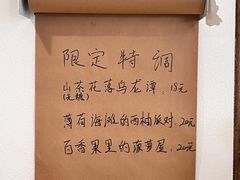 限定特调
山茶花落乌龙潭，18元
(无糖)
薄荷海滩的西柚派对，20元
百香果里的菠萝屋，20元